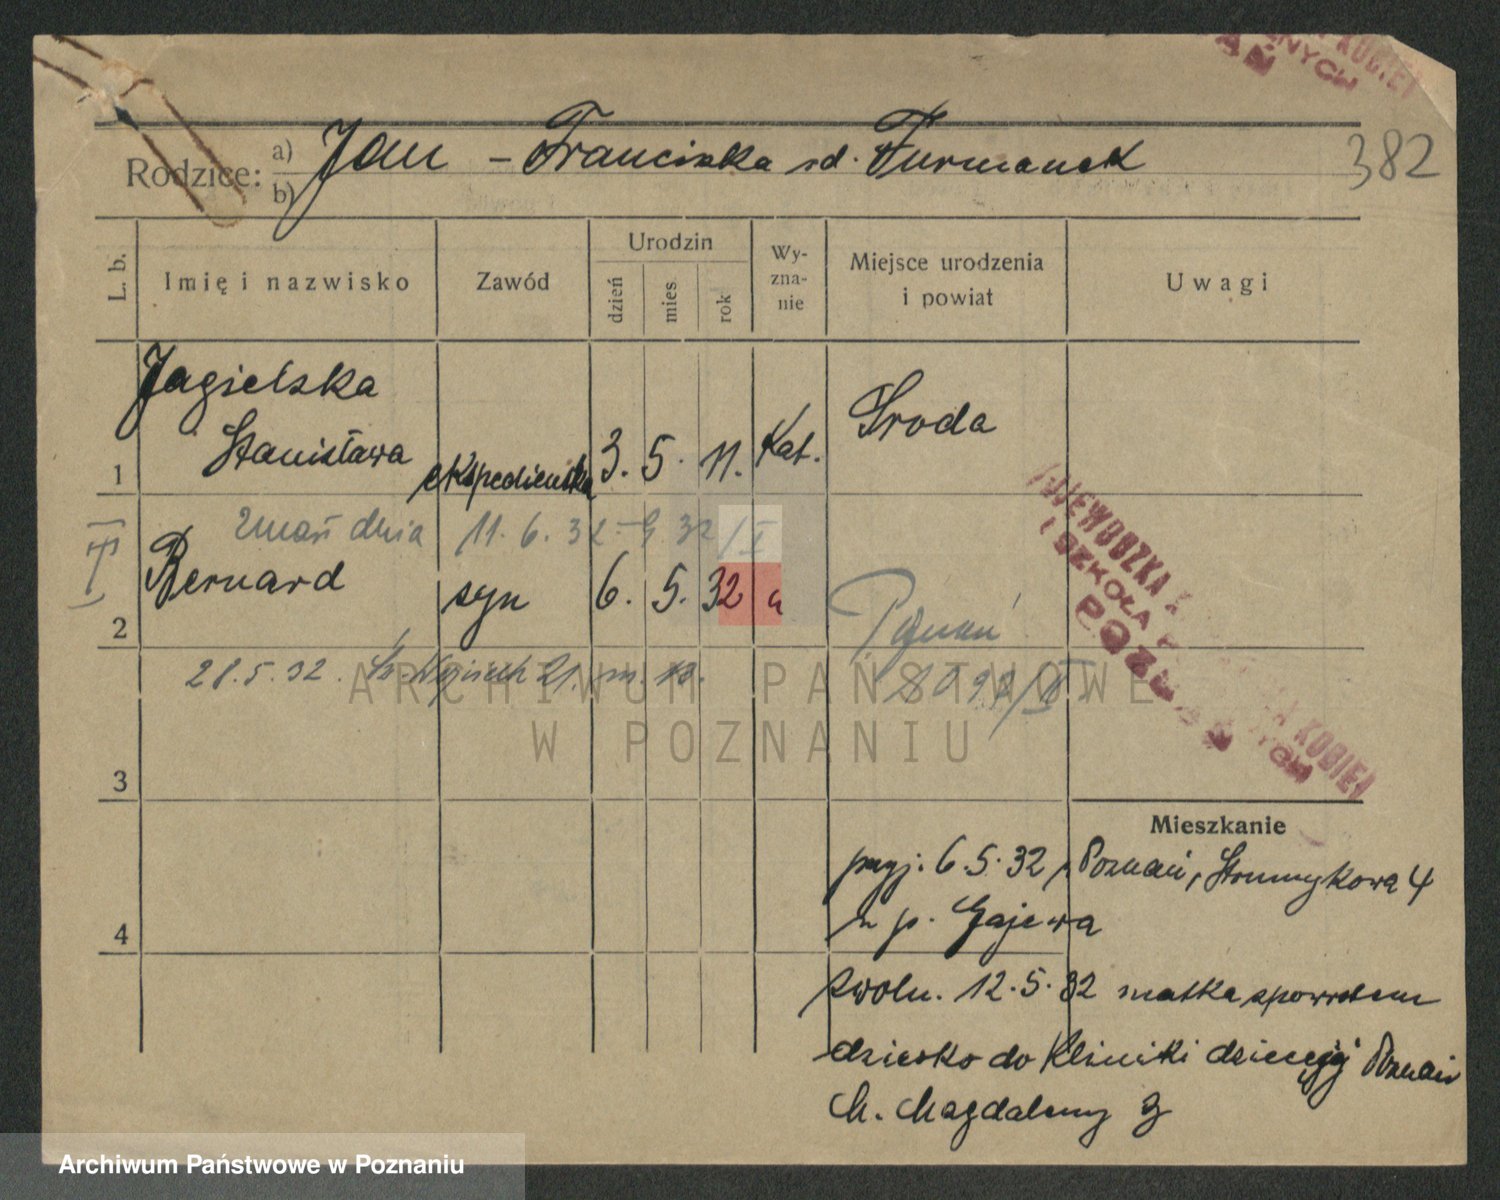 KOBIET
Rodzice: a) b) Jan - Franciszka zd. Furmanek
382
L. b.
Imię i nazwisko
Zawód
Urodzin
dzień
mies
rok
Wy-
zna-
nie
Miejsce urodzenia
i powiat
Uwagi
Jagielska
Stanisława
1
ekspedientka
3. 5. 11.
Kat.
Środa
zmarł dnia 11. 6. 32
Bernard
2
syn
6. 5. 32
Poznań
28.5.32. Św. Wojciech 21. m. 13.
WOJEWÓDZKA
I SZKOŁA
POZNAŃ
KOBIET
ARCHIWUM PAŃSTWOWE
W POZNANIU
3
Mieszkanie
przyj. 6.5.32, Poznań, Strumykowa 4
u p. Gajewa
4
zwoln. 12.5.32 matka spowrotem
dziecko do Kliniki dziecięcej Poznań
M. Magdaleny 3
Archiwum Państwowe w Poznaniu